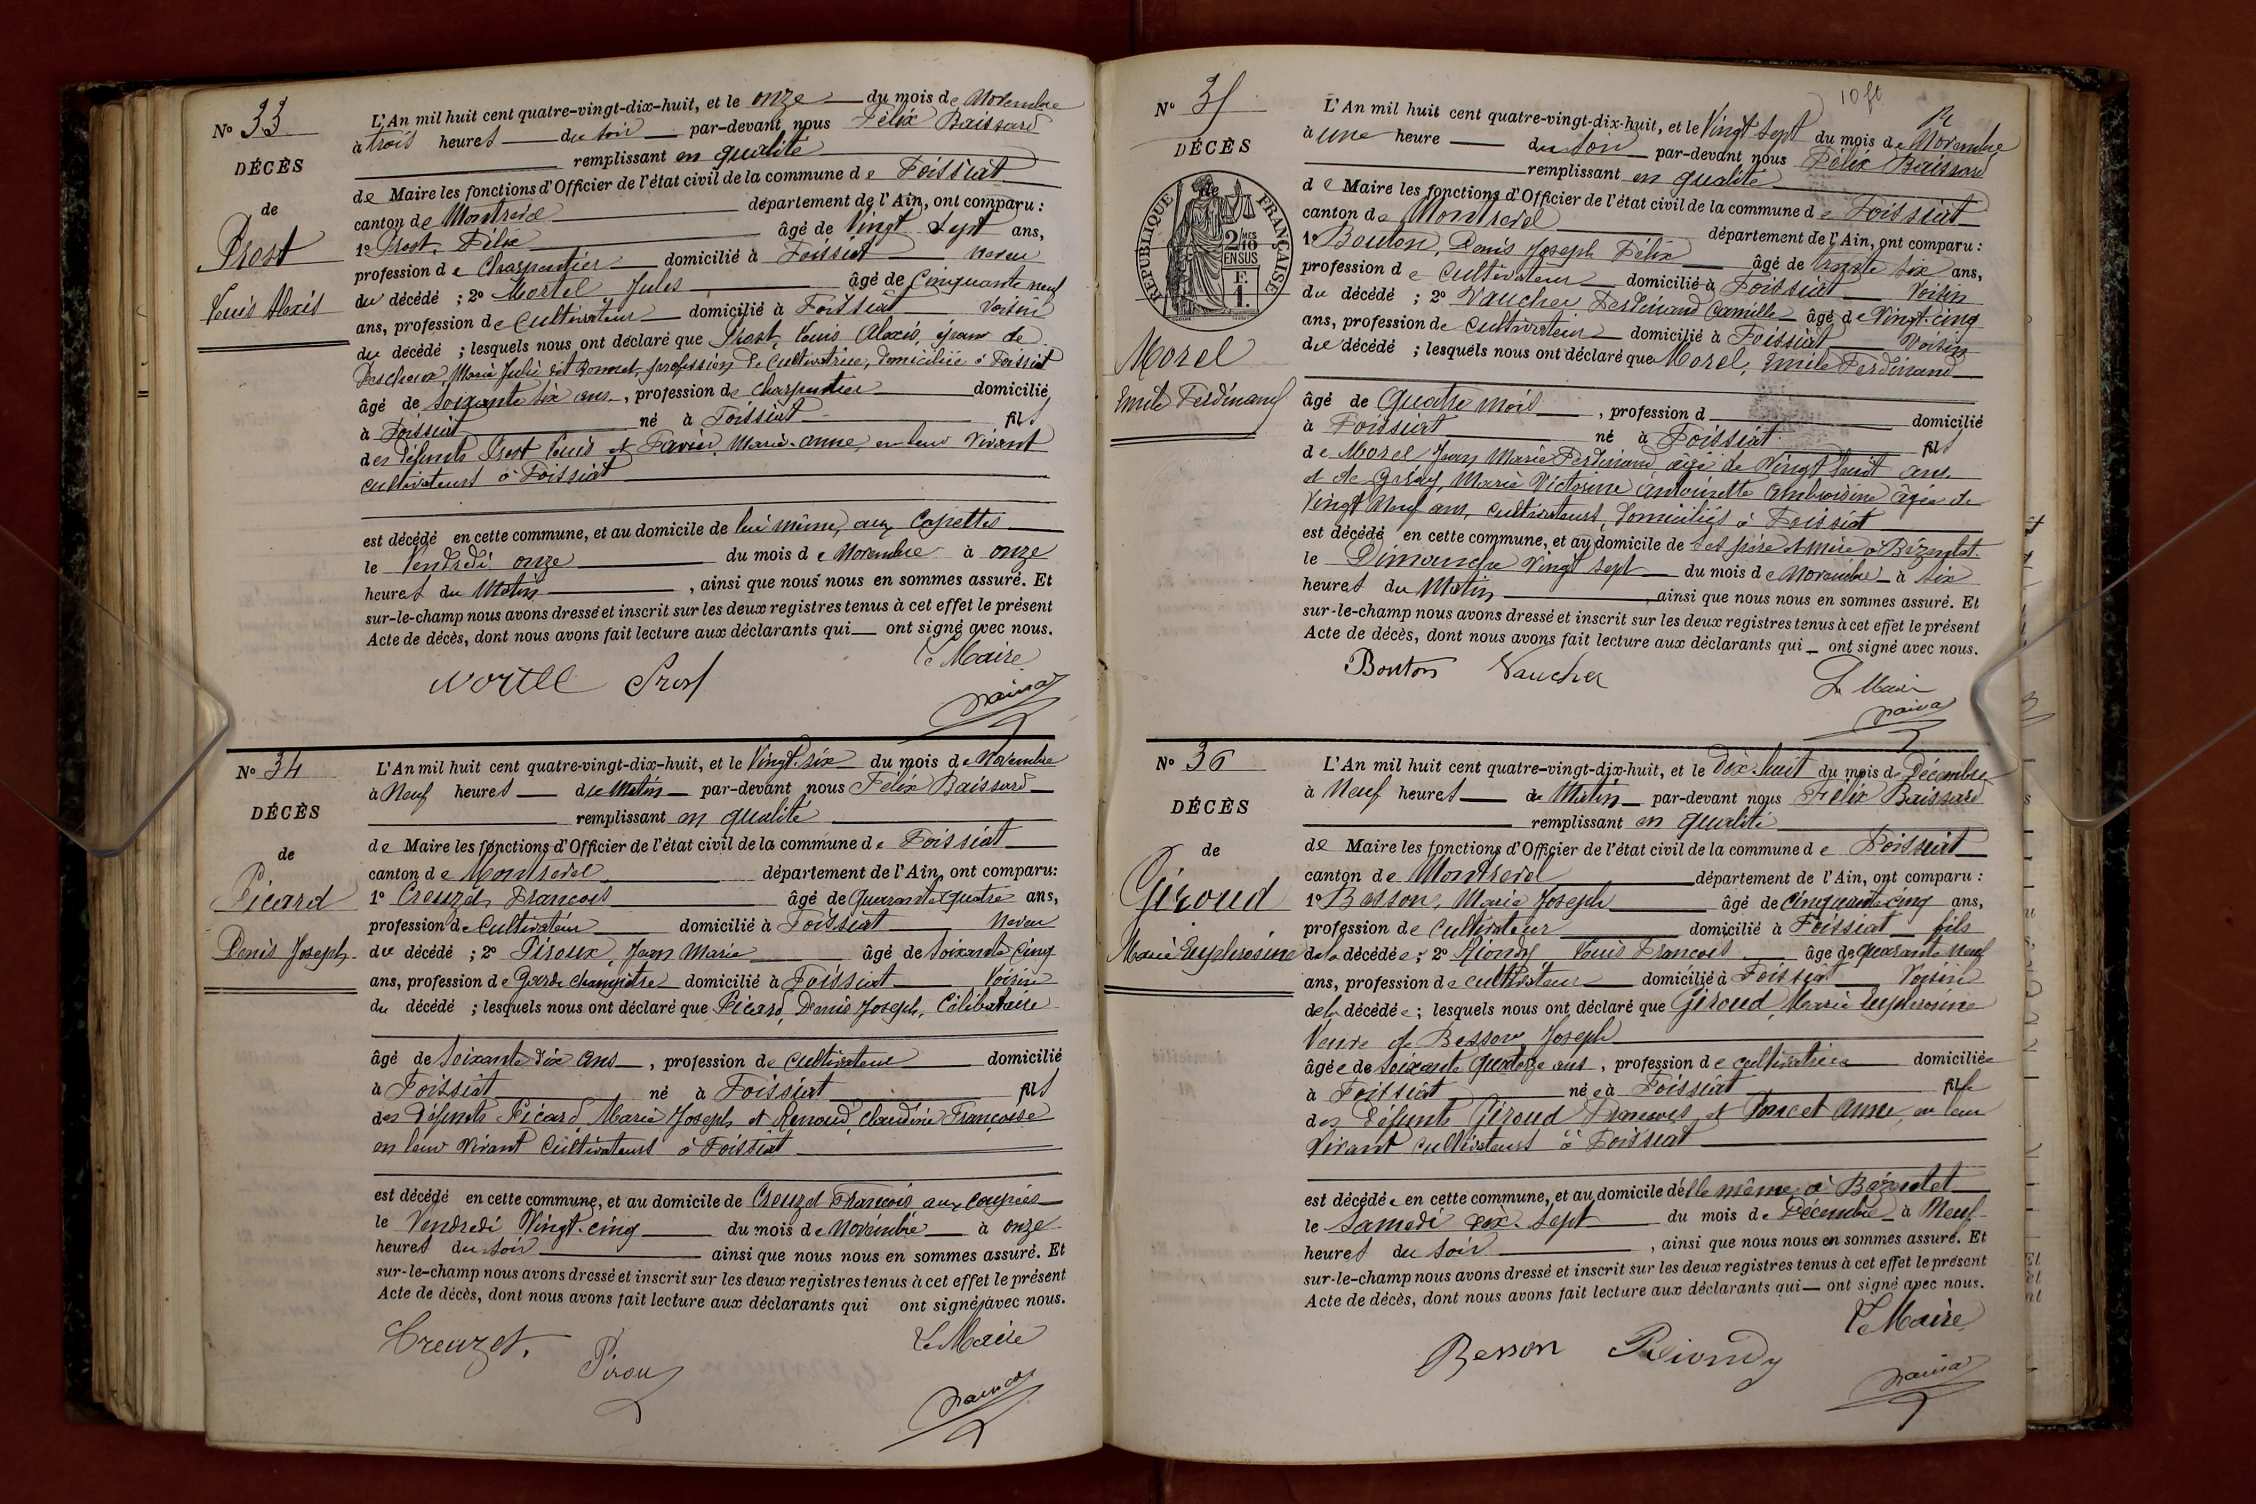 N° 33
DÉCÈS
de
Prost
Louis Alexis
L'An mil huit cent quatre-vingt-dix-huit, et le onze du mois de Novembre
à trois heures du soir par-devant nous Félix Baissard
remplissant en qualité
de Maire les fonctions d'Officier de l'état civil de la commune de Foissiat
canton de Montrevel département de l'Ain, ont comparu :
1° Prost, Félix âgé de Vingt Sept ans,
profession de Charpentier domicilié à Foissiat neveu
du décédé ; 2° Mortel Jules âgé de Cinquante neuf
ans, profession de Cultivateur domicilié à Foissiat Voisin
du décédé ; lesquels nous ont déclaré que Prost, Louis Alexis, époux de
Marie Julie dit Bonnet, profession de Cultivatrice, domiciliée à Foissiat
âgé de soixante six ans, profession de charpentier domicilié
à Foissiat né à Foissiat fils
des défunts Prost Louis et Favier, Marie-Anne, en leur Vivant
cultivateurs à Foissiat
est décédé en cette commune, et au domicile de lui même, aux Capettes
le Vendredi onze du mois de Novembre à onze
heures du Matin, ainsi que nous nous en sommes assuré. Et
sur-le-champ nous avons dressé et inscrit sur les deux registres tenus à cet effet le présent
Acte de décès, dont nous avons fait lecture aux déclarants qui ont signé avec nous.
Le Maire
Prost
N° 34
DÉCÈS
de
Picard
Denis Joseph
L'An mil huit cent quatre-vingt-dix-huit, et le Vingt-six du mois de Novembre
à Neuf heures du Matin par-devant nous Félix Baissard
remplissant en qualité
de Maire les fonctions d'Officier de l'état civil de la commune de Foissiat
canton de Montrevel département de l'Ain, ont comparu:
1° Creuzet, François âgé de Quarante quatre ans,
profession de Cultivateur domicilié à Foissiat Neveu
du décédé ; 2° Piroux, Jean Marie âgé de soixante cinq
ans, profession de Garde champêtre domicilié à Foissiat Voisin
du décédé ; lesquels nous ont déclaré que Picard, Denis Joseph, Célibataire
âgé de Soixante dix ans, profession de cultivateur domicilié
à Foissiat né à Foissiat fils
des défunts Picard, Marie Joseph et Renoud, Claudine Françoise
en leur Vivant Cultivateurs à Foissiat
est décédé en cette commune, et au domicile de Creuzet François aux Coupées
le Vendredi Vingt-cinq du mois de Novembre à onze
heures du soir ainsi que nous nous en sommes assuré. Et
sur-le-champ nous avons dressé et inscrit sur les deux registres tenus à cet effet le présent
Acte de décès, dont nous avons fait lecture aux déclarants qui ont signé avec nous.
Creuzet. Piroux
Le Maire
10 ft
N° 35
DÉCÈS
de
RÉPUBLIQUE FRANÇAISE
2/10 MES
EN SUS
F.
1.
Morel
Emile Ferdinand
L'An mil huit cent quatre-vingt-dix-huit, et le Vingt Sept du mois de Novembre
à une heure du soir par-devant nous Félix Baissard
remplissant en qualité
de Maire les fonctions d'Officier de l'état civil de la commune de Foissiat
canton de Montrevel département de l'Ain, ont comparu :
1° Bouton, Denis Joseph Félix âgé de trente six ans,
profession de Cultivateur domicilié à Foissiat Voisin
du décédé ; 2° Vaucher Ferdinand Camille âgé de Vingt-cinq
ans, profession de Cultivateur domicilié à Foissiat Voisin
du décédé ; lesquels nous ont déclaré que Morel, Emile Ferdinand
âgé de Quatre mois, profession d domicilié
à Foissiat né à Foissiat fils
de Morel Jean Marie Ferdinand âgé de Vingt huit ans
et de Marie Victorine Antoinette Ambroisine âgée de
Vingt Neuf ans, Cultivateurs, domiciliés à Foissiat
est décédé en cette commune, et au domicile de ses père et mère à Bézentet
le Dimanche Vingt Sept du mois de Novembre à six
heures du Matin, ainsi que nous nous en sommes assuré. Et
sur-le-champ nous avons dressé et inscrit sur les deux registres tenus à cet effet le présent
Acte de décès, dont nous avons fait lecture aux déclarants qui ont signé avec nous.
Bouton Vaucher
Le Maire
N° 36
DÉCÈS
de
Giroud
Marie Euphrosine
L'An mil huit cent quatre-vingt-dix-huit, et le Dix-huit du mois de Décembre
à Neuf heures du Matin par-devant nous Félix Baissard
remplissant en qualité
de Maire les fonctions d'Officier de l'état civil de la commune de Foissiat
canton de Montrevel département de l'Ain, ont comparu :
1° Besson, Marie Joseph âgé de cinquante cinq ans,
profession de Cultivateur domicilié à Foissiat fils
de la décédée ; 2° Riondy Louis François âgé de quarante neuf
ans, profession de cultivateur domicilié à Foissiat Voisin
de la décédée ; lesquels nous ont déclaré que Giroud, Marie Euphrosine
Veuve de Besson Joseph
âgée de soixante quatorze ans, profession de cultivatrice domiciliée
à Foissiat née à Foissiat fille
des défunts Giroud François et Poncet Anne, en leur
Vivant cultivateurs à Foissiat
est décédée en cette commune, et au domicile d'elle même à Bézentet
le Samedi dix-sept du mois de Décembre à Neuf
heures du soir, ainsi que nous nous en sommes assuré. Et
sur-le-champ nous avons dressé et inscrit sur les deux registres tenus à cet effet le présent
Acte de décès, dont nous avons fait lecture aux déclarants qui ont signé avec nous.
Le Maire
Besson Riondy